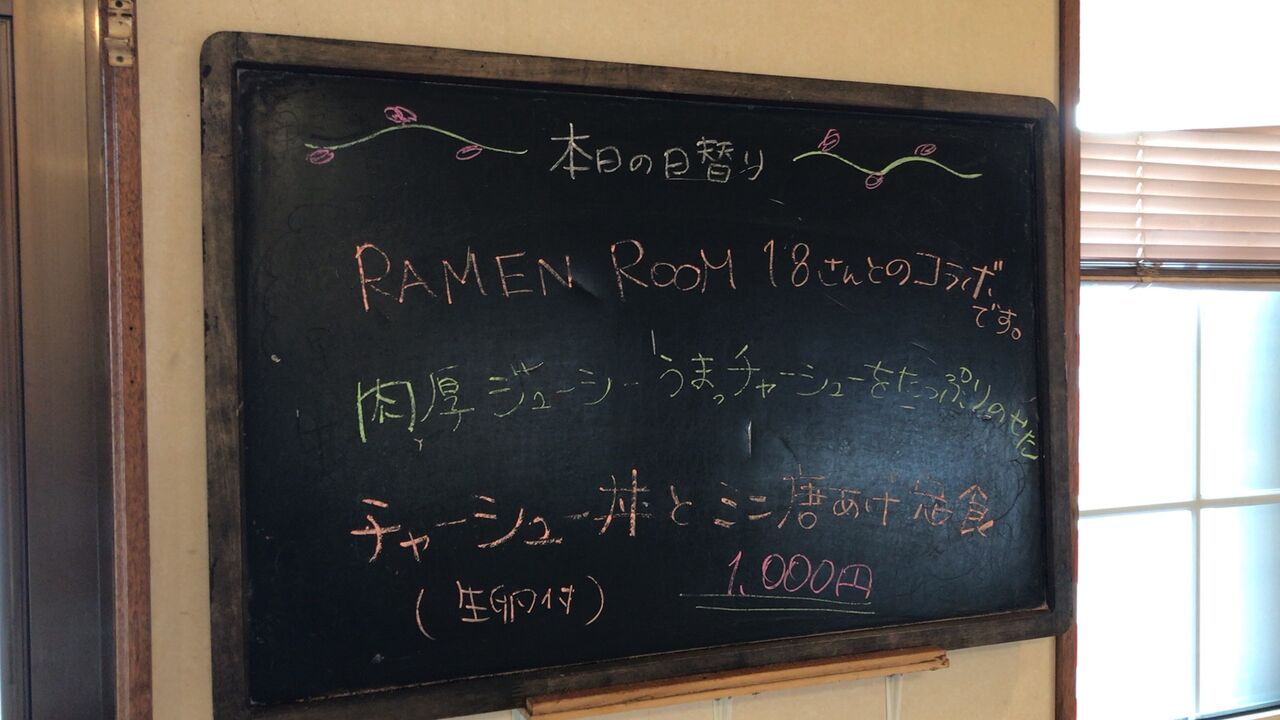 本日の日替り
RAMEN ROOM 18さんとのコラボ
です。
肉厚ジューシーうまっチャーシューをたっぷりのせた
チャーシュー丼とミニ唐あげ定食
(生卵付) 1,000円